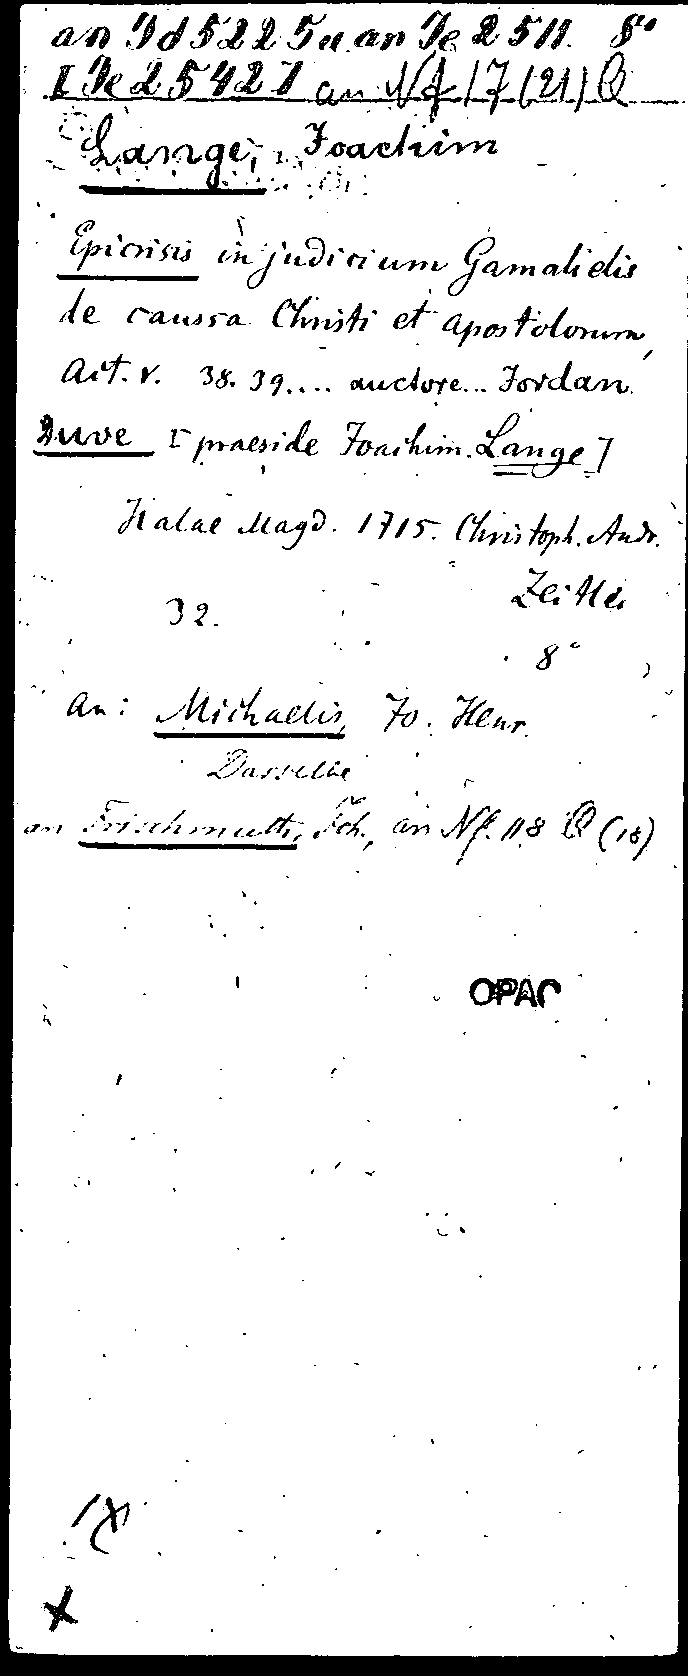 an Id 5225 u. an Ie 2511. 8°
I Ie 2542 an Nf 17 (21) Q
Lange, Joachim
Epicrisis in judicium Gamalielis
de caussa Christi et Apostolorum,
Act. V. 38. 39.... auctore... Jordan
Duve [praeside Joachim. Lange]
Halae Magd. 1715. Christoph. Andr.
Zeitler
32.
8°
An: Michaelis, Jo. Henr.
Dasselbe
an Frischmuth, Joh., an Nf. 118 Q (18)
OPAC
X